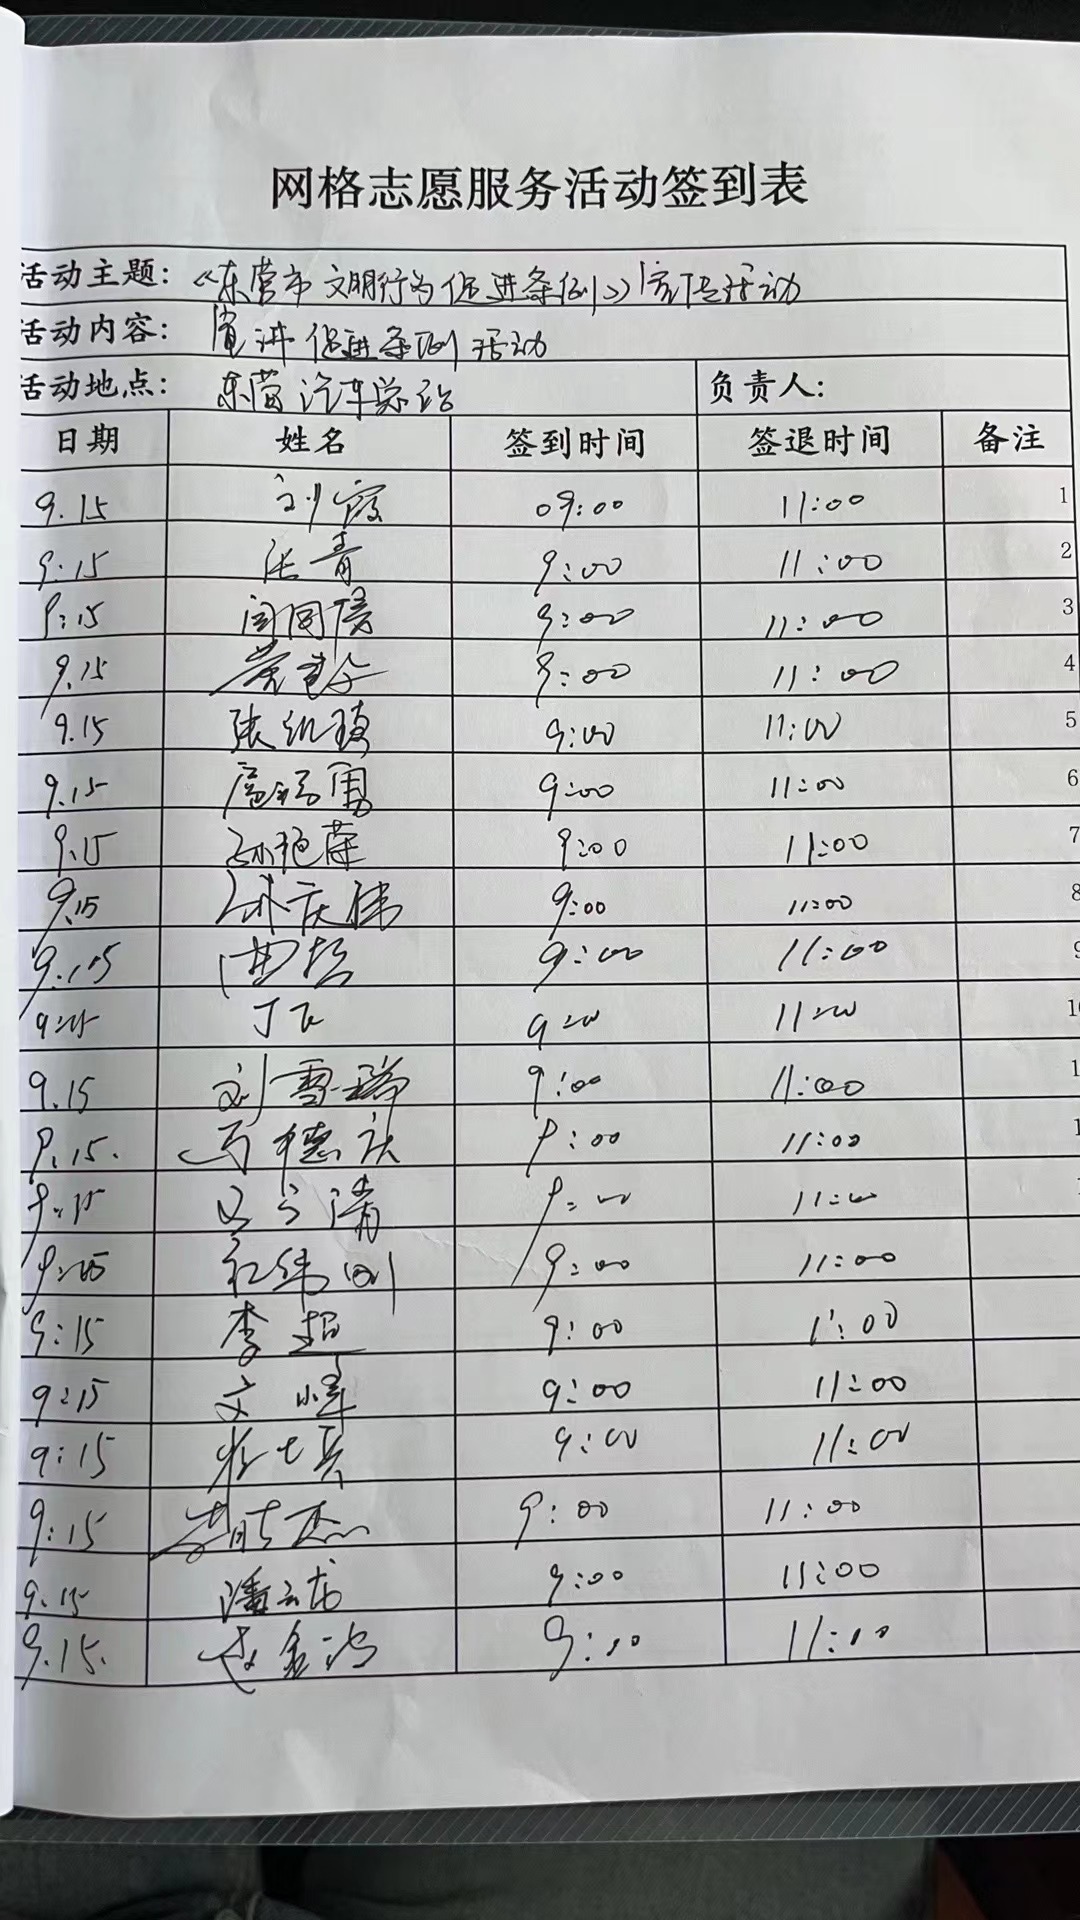 网格志愿服务活动签到表
活动主题: 《东营市文明行为促进条例》宣传活动
活动内容: 宣讲促进条例活动
活动地点: 东营汽车总站 负责人:
日期 姓名 签到时间 签退时间 备注
9.15 刘霞 09:00 11:00 1
9:15 张青 9:00 11:00 2
9:15 9:00 11:00 3
9.15 9:00 11:00 4
9.15 张 9:00 11:00 5
9.15 9:00 11:00 6
9.15 孙艳萍 9:00 11:00 7
9.15 孙庆伟 9:00 11:00 8
9.15 曲 9:00 11:00 9
9:15 丁飞 9:00 11:00
9.15 刘雪瑞 9:00 11:00
9.15. 马德庆 9:00 11:00
9:15 9:00 11:00
9:15 9:00 11:00
9:15 李超 9:00 11:00
9:15 文峰 9:00 11:00
9:15 9:00 11:00
9:15 9:00 11:00
9.15 潘云龙 9:00 11:00
9.15. 赵金 9:00 11:00